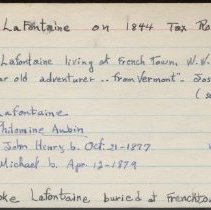 LaFontaine on 1844 Tax Ro
Lafontaine living at French Town. W.W.
ar old adventurer -- from Vermont". Jos
Lafontaine
Philomine Aubin
John Henry b. Oct. 21-1877
Michael b. Apr. 12-1879
oke Lafontaine, buried at Frenchto